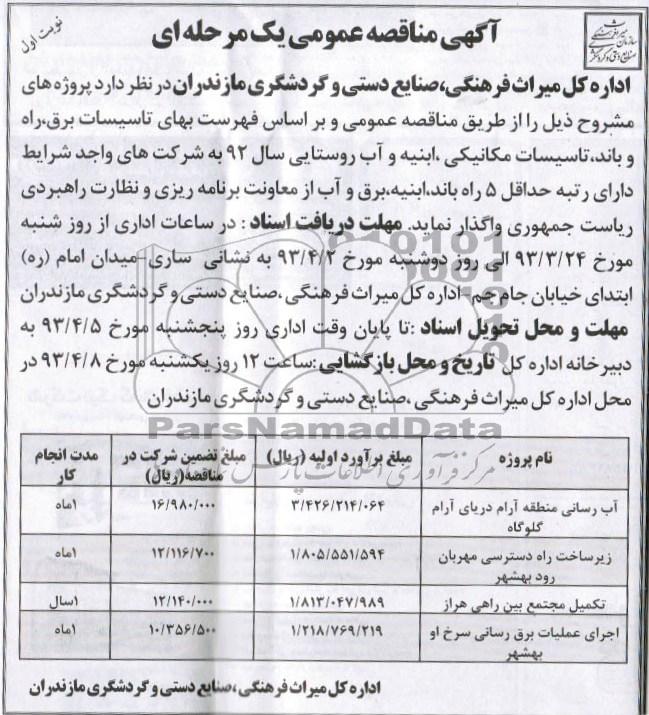 آگهی مناقصه عمومی یک مرحله ای
نوبت اول
اداره کل میراث فرهنگی،صنایع دستی و گردشگری مازندران در نظر دارد پروژه های
مشروح ذیل را از طریق مناقصه عمومی و بر اساس فهرست بهای تاسیسات برق،راه
و باند،تاسیسات مکانیکی ،ابنیه و آب روستایی سال ۹۲ به شرکت های واجد شرایط
دارای رتبه حداقل ۵ راه باند،ابنیه،برق و آب از معاونت برنامه ریزی و نظارت راهبردی
ریاست جمهوری واگذار نماید. مهلت دریافت اسناد : در ساعات اداری از روز شنبه
مورخ ۹۳/۳/۲۴ الی روز دوشنبه مورخ ۹۳/۴/۲ به نشانی ساری-میدان امام (ره)
ابتدای خیابان جام جم- اداره کل میراث فرهنگی ،صنایع دستی و گردشگری مازندران
مهلت و محل تحویل اسناد :تا پایان وقت اداری روز پنجشنبه مورخ ۹۳/۴/۵ به
دبیرخانه اداره کل تاریخ و محل بازگشایی :ساعت ۱۲ روز یکشنبه مورخ ۹۳/۴/۸ در
محل اداره کل میراث فرهنگی ،صنایع دستی و گردشگری مازندران
ParsNamadData
نام پروژه مبلغ برآورد اولیه (ریال) مبلغ تضمین شرکت در مناقصه(ریال) مدت انجام کار
آب رسانی منطقه آرام دریای آرام گلوگاه ۳/۴۲۶/۲۱۴/۰۶۴ ۱۶/۹۸۰/۰۰۰ ۱ماه
زیرساخت راه دسترسی مهربان رود بهشهر ۱/۸۰۵/۵۵۱/۵۹۴ ۱۲/۱۱۶/۷۰۰ ۱ماه
تکمیل مجتمع بین راهی هراز ۱/۸۱۳/۰۴۷/۹۸۹ ۱۲/۱۴۰/۰۰۰ ۱سال
اجرای عملیات برق رسانی سرخ او بهشهر ۱/۲۱۸/۷۶۹/۲۱۹ ۱۰/۳۵۶/۵۰۰ ۱ماه
اداره کل میراث فرهنگی ،صنایع دستی و گردشگری مازندران